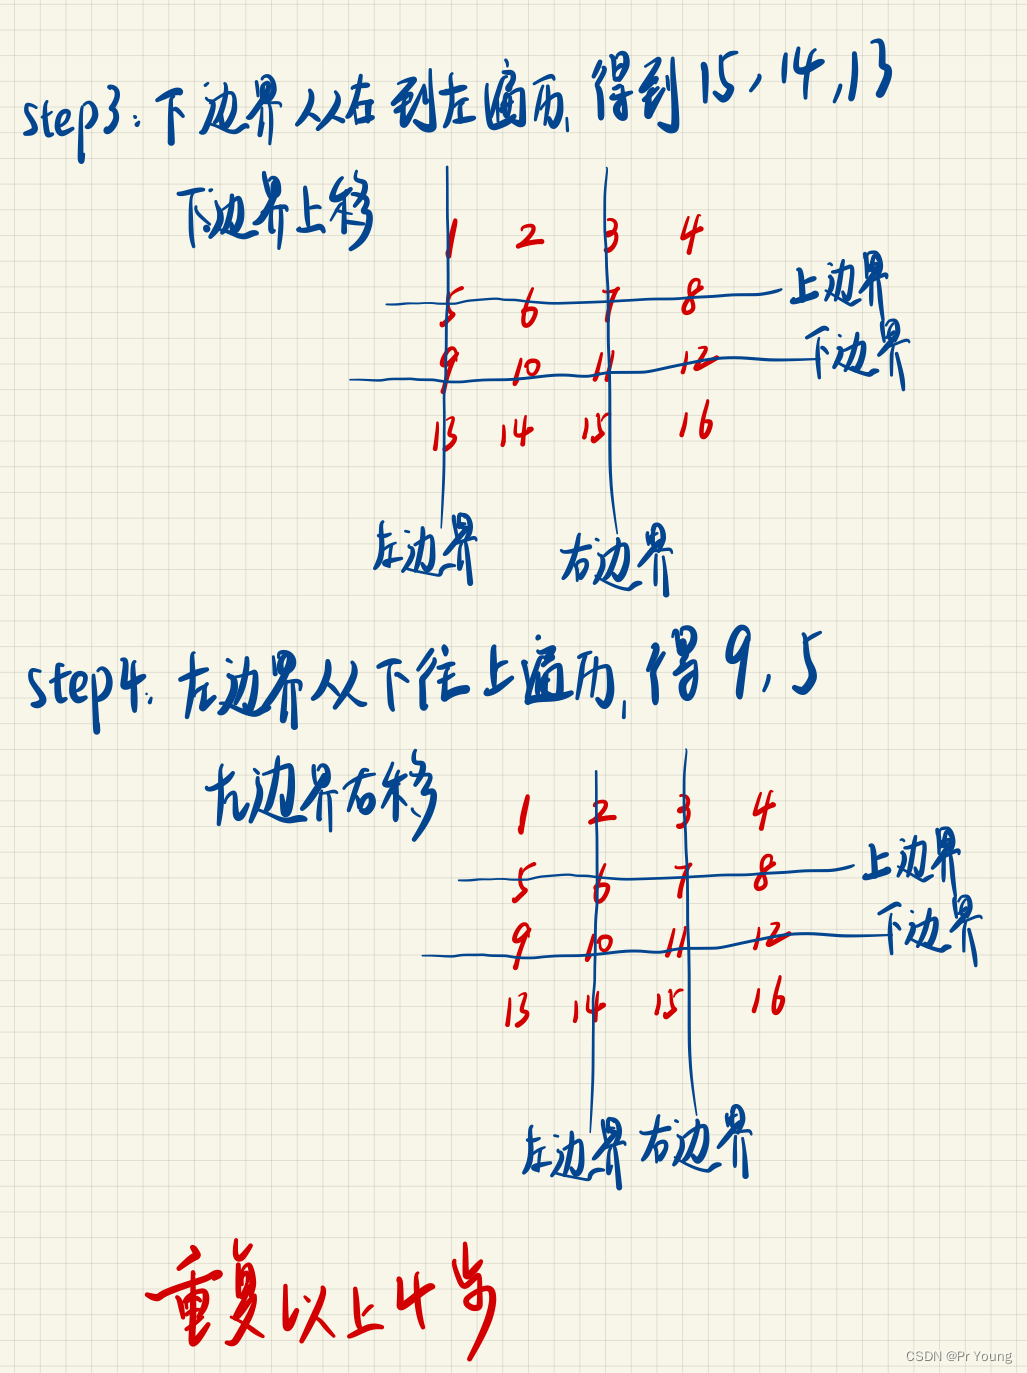 step3:下边界从右到左遍历,得到15,14,13
下边界上移
1 2 3 4
上边界
5 6 7 8
下边界
9 10 11 12
13 14 15 16
左边界 右边界
step4.左边界从下往上遍历,得9,5
左边界右移
1 2 3 4
上边界
5 6 7 8
下边界
9 10 11 12
13 14 15 16
左边界 右边界
重复以上4步
CSDN @Pr Young